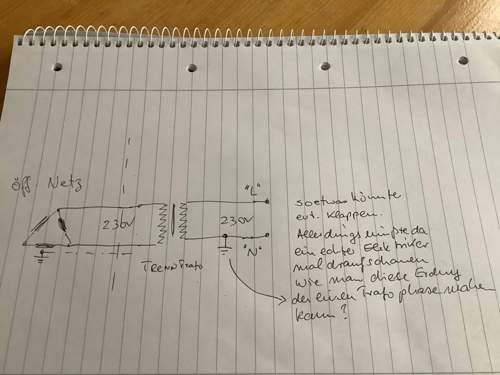 öff. Netz
230V
Trenntrafo
230V
"L"
"N"
soetwas könnte
evt. klappen.
Allerdings müsste da
ein echter Elektriker
mal draufschauen
wie man diese Erdung
der einen Trafo phase machen
kann?